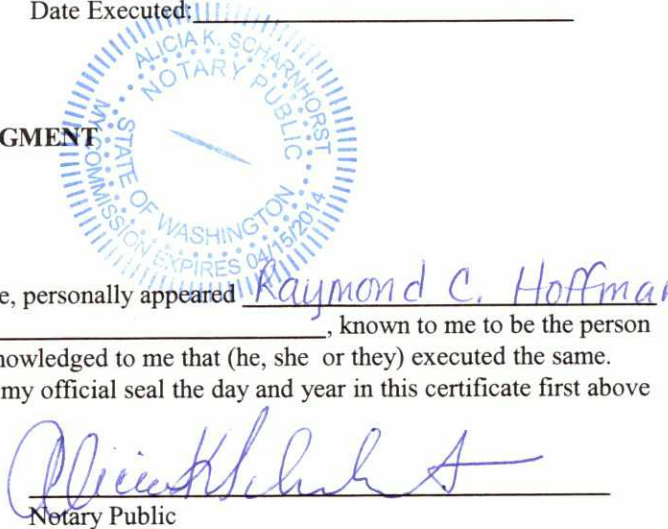 Date Executed:
ALICIA K. SCHARNHORST
NOTARY PUBLIC
STATE OF WASHINGTON
MY COMMISSION EXPIRES 04/15/2014
GMENT
e, personally appeared Raymond C. Hoffman
, known to me to be the person
nowledged to me that (he, she or they) executed the same.
my official seal the day and year in this certificate first above
Notary Public